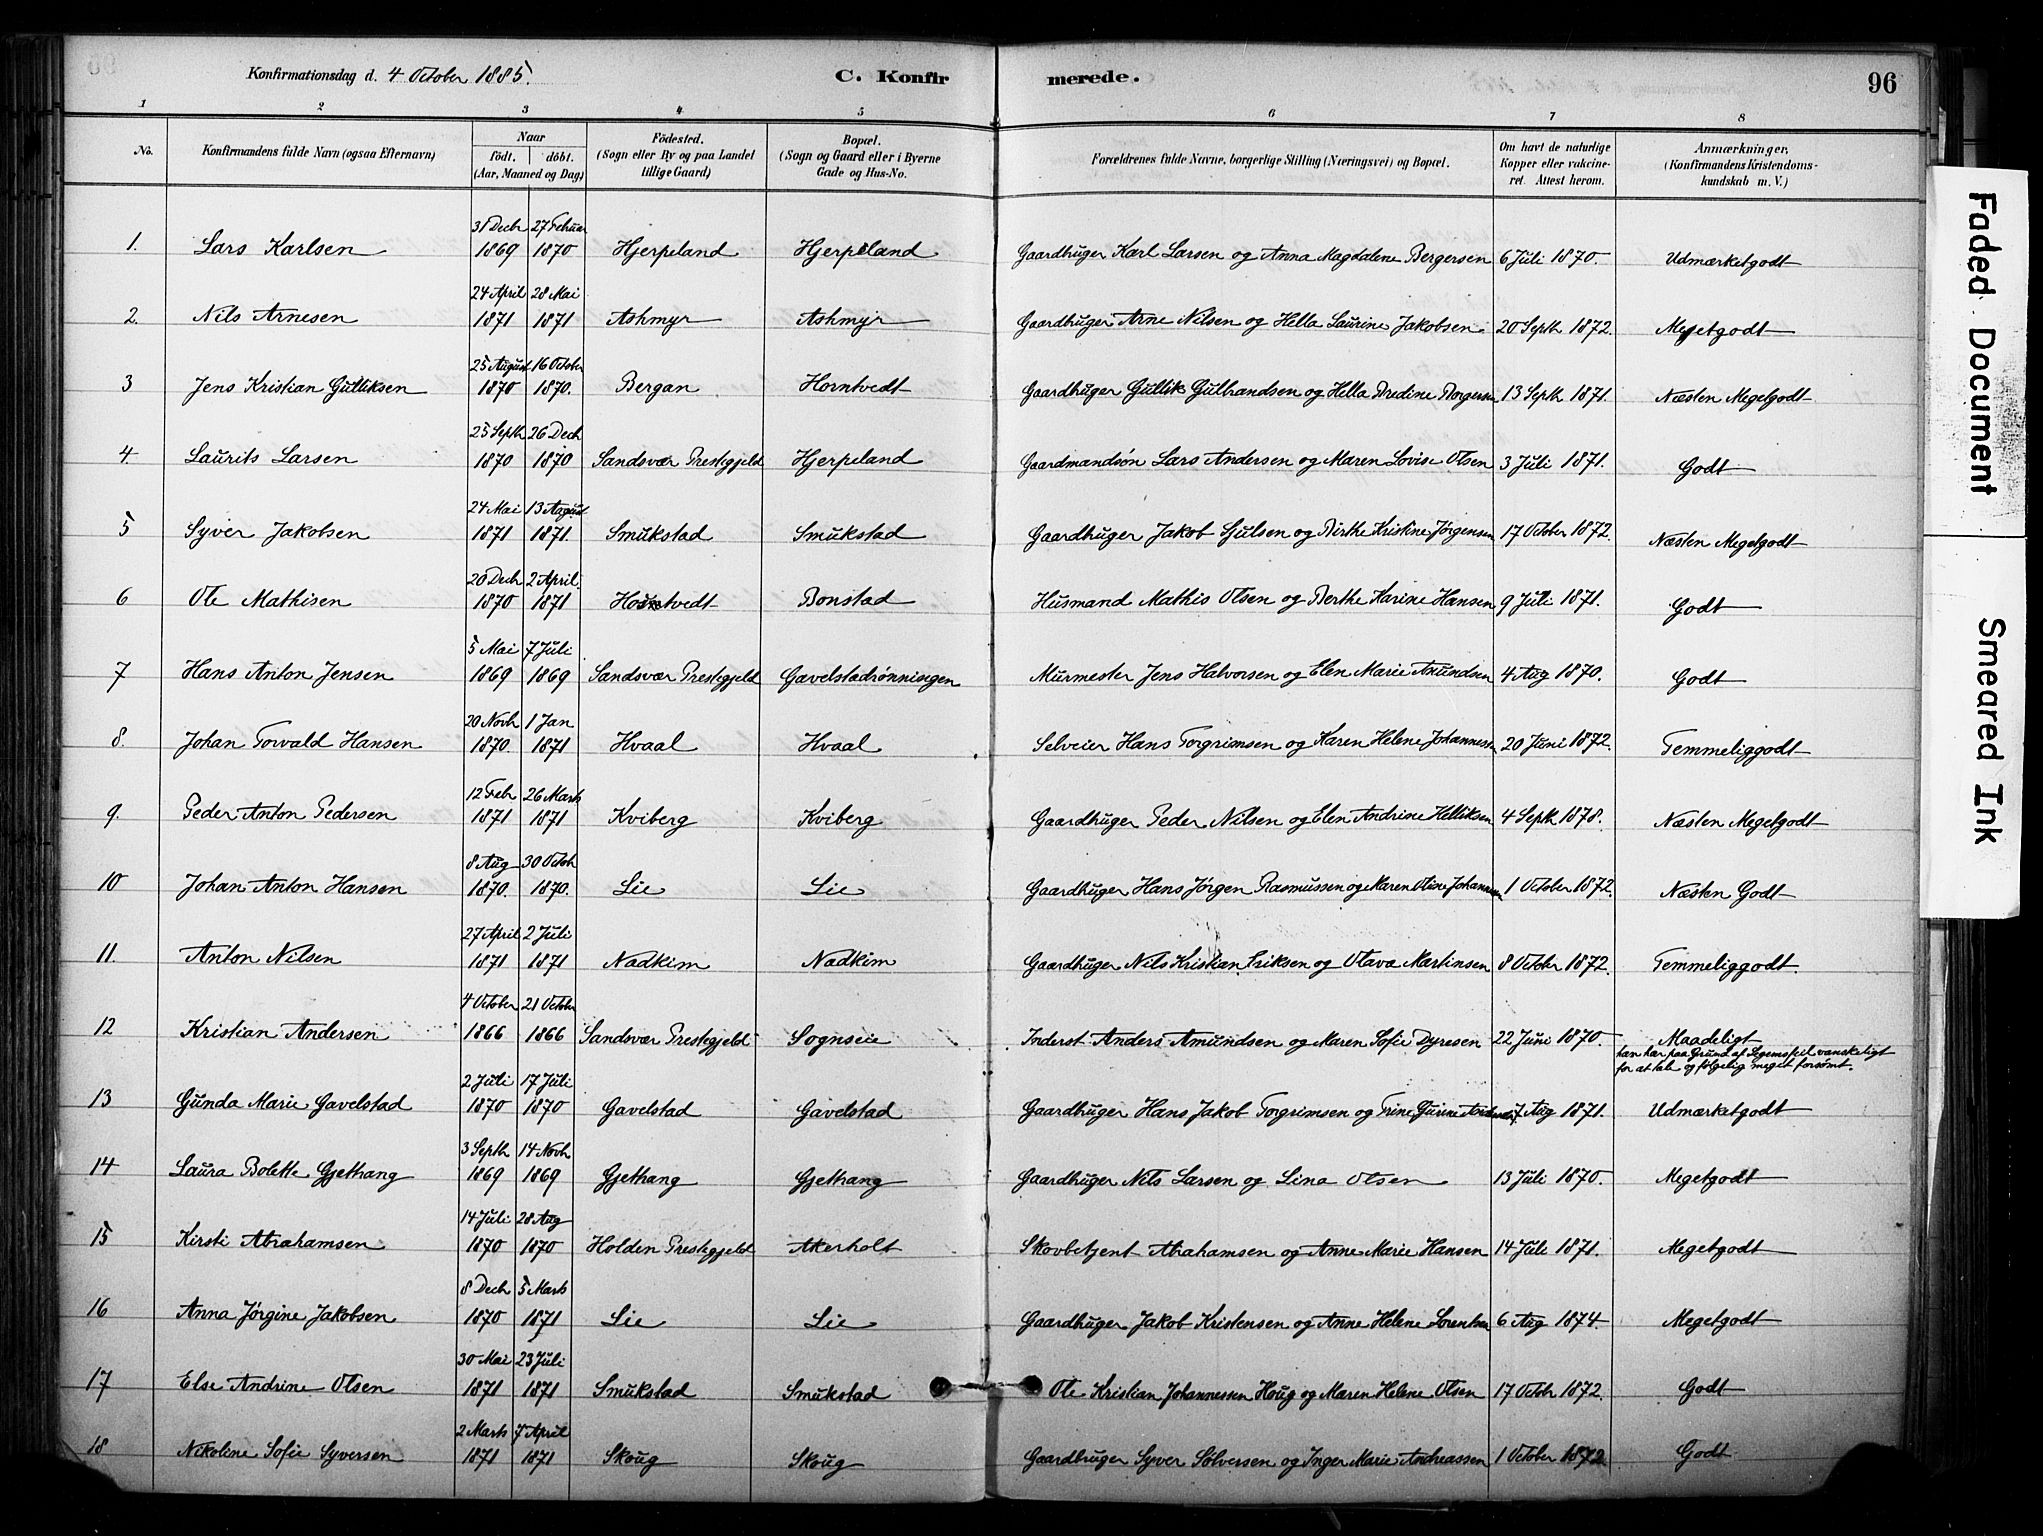 Konfirmationsdag d. 4 October 1885. C. Konfirmerede. 96
1 2 3 4 5 6 7 8
No. Konfirmandens fulde Navn (ogsaa Efternavn) Naar født. døbt. (Aar, Maaned og Dag) Fødested. (Sogn eller By og paa Landet tillige Gaard) Bopæl. (Sogn og Gaard eller i Byerne Gade og Hus-No. Forældrenes fulde Navne, borgerlige Stilling (Næringsvei) og Bopæl. Om havt de naturlige Kopper eller vakcineret. Attest herom. Anmærkninger, (Konfirmandens Kristendomskundskab m. V.)
1. Lars Karlsen 31 Decb 1869 27 Februar 1870 Hjerpeland Hjerpeland Gaardbruger Karl Larsen og Anna Magdalene Bergersen 6 Juli 1870. Udmærketgodt
2. Nils Arnesen 24 April 1871 28 Mai 1871 Askmyr Askmyr Gaardbruger Arne Nilsen og Hella Laurine Jakobsen 20 Septb 1872. Megetgodt
3 Jens Kristian Gulliksen 25 August 1870 16 October 1870. Bergan Horntvedt Gaardbruger Gullik Gulbrandsen og Hella Bredine Borgersen 13 Septb 1871. Næsten Megetgodt
4. Laurits Larsen 25 Septb 1870 26 Decb 1870 Sandsvær Prestegjeld Hjerpeland Gaardmandsøn Lars Andersen og Maren Lovise Olsen 3 Juli 1871. Godt
5 Syver Jakobsen 24 Mai 1871 13 August 1871. Smukstad Smukstad Gaardbruger Jakob Gulsen og Birthe Kristine Jørgensen 17 October 1872. Næsten Megetgodt
6 Ole Mathisen 20 Decb 1870 2 April 1871 Horntvedt Bonstad Husmand Mathis Olsen og Berthe Karine Hansen 9 Juli 1871. Godt
7 Hans Anton Jensen 5 Mai 1869 7 Juli 1869 Sandsvær Prestegjeld Gavelstadrønningen Murmester Jens Halvorsen og Elen Marie Amundsen 4 Aug 1870. Godt
8. Johan Torvald Hansen 20 Novb 1870. 1 Jan 1871 Hvaal Hvaal Selveier Hans Torgrimsen og Karen Helene Johannesen 20 Juni 1872. Temmeliggodt
9. Peder Anton Pedersen 12 Feb 1871 26 Marts 1871 Kviberg Kviberg Gaardbruger Peder Nilsen og Elen Andrine Helliksen 4 Septb 1878. Næsten Megetgodt
10 Johan Anton Hansen 8 Aug 1870. 30 Octob 1870. Lie Lie Gaardbruger Hans Jørgen Rasmussen og Maren Oline Johannesen 1 October 1872. Næsten Godt
11. Anton Nilsen 27 April 1871 2 Juli 1871 Nadkim Nadkim Gaardbruger Nils Kristian Eriksen og Olava Martinsen 8 Octobr 1872. Temmeliggodt.
12 Kristian Andersen 4 October 1866 21 October 1866 Sandsvær Prestegjeld Sognseie Inderst Anders Amundsen og Maren Sofie Dyresen 22 Juni 1870. Maadeligt
han har paa Grund af Legemsfeil vanskeligt
for at tale og følgelig meget forsømt.
13 Gunda Marie Gavelstad 2 Juli 1870 17 Juli 1870 Gavelstad Gavelstad Gaardbruger Hans Jakob Torgrimsen og Trine Gurine 7 Aug 1871. Udmærketgodt
14 Laura Bolette Gjethang 3 Septb 1869 14 Novb 1869 Gjethang Gjethang Gaardbruger Nils Larsen og Lina Olsen 13 Juli 1870. Megetgodt
15 Kirsti Abrahamsen 14 Juli 1870 28 Aug 1870 Holden Prestegjeld Akerholt Skovbetjent Abrahamsen og Anne Marie Hansen 14 Juli 1871. Megetgodt
16 Anna Jørgine Jakobsen 8 Decb 1870 5 Marts 1871 Lie Lie Gaardbruger Jakob Kristensen og Anne Helene Lorentsen 6 Aug 1874. Megetgodt
17 Else Andrine Olsen 30 Mai 1871 23 Juli 1871 Smukstad Smukstad Ole Kristian Johannessen Houg og Maren Helene Olsen 17 Octob 1872. Godt
18 Nikoline Sofie Syversen 2 Marts 1871 7 April 1871 Skoug Skoug Gaardbruger Syver Sølversen og Inger Marie Andreassen 1 October 1872. Godt
Faded Document
Smeared Ink